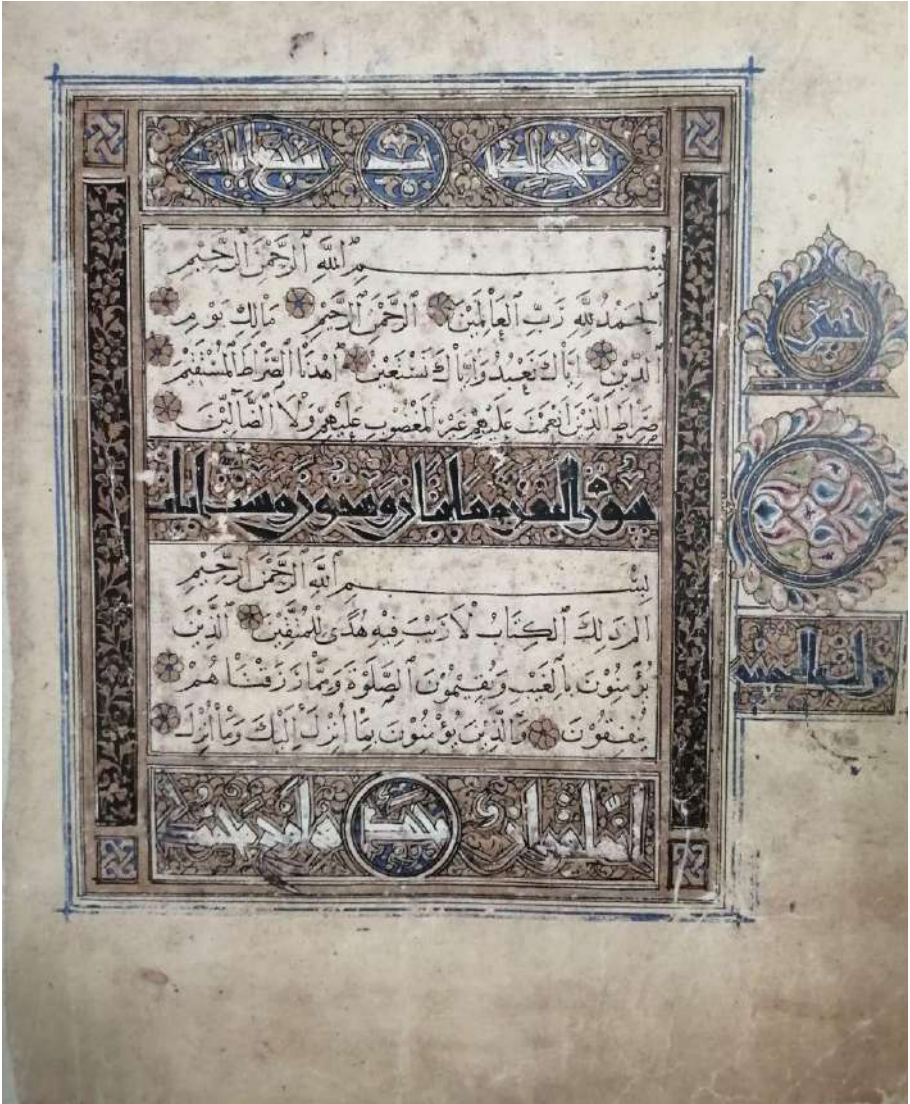 فاتحة الكتا ب سبع ايات
بِسْمِ ٱللَّهِ ٱلرَّحْمٰنِ ٱلرَّحِيْمِ
اَلْحَمْدُ لِلَّهِ رَبِّ ٱلْعَالَمِيْنَ ٱلرَّحْمٰنِ ٱلرَّحِيْمِ مَالِكِ يَوْمِ
ٱلدِّيْنِ اِيَّاكَ نَعْبُدُ وَاِيَّاكَ نَسْتَعِيْنُ اِهْدِنَا ٱلصِّرَاطَ ٱلْمُسْتَقِيْمَ
صِرَاطَ ٱلَّذِيْنَ اَنْعَمْتَ عَلَيْهِمْ غَيْرِ ٱلْمَغْضُوبِ عَلَيْهِمْ وَلَا ٱلضَّالِّيْنَ
سورة البقره مايتان وثمنون وست ايات
بِسْمِ ٱللَّهِ ٱلرَّحْمٰنِ ٱلرَّحِيْمِ
الم ذٰلِكَ ٱلْكِتَابُ لَا رَيْبَ فِيْهِ هُدًى لِلْمُتَّقِيْنَ ٱلَّذِيْنَ
يُؤْمِنُوْنَ بِالْغَيْبِ وَيُقِيْمُوْنَ ٱلصَّلٰوةَ وَمِمَّا رَزَقْنَاهُمْ
يُنْفِقُوْنَ وَٱلَّذِيْنَ يُؤْمِنُوْنَ بِمَا اُنْزِلَ اِلَيْكَ وَمَا اُنْزِلَ